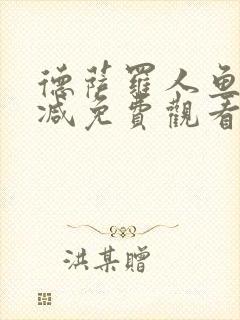 德薩羅人魚
减免費觀看
洪某贈